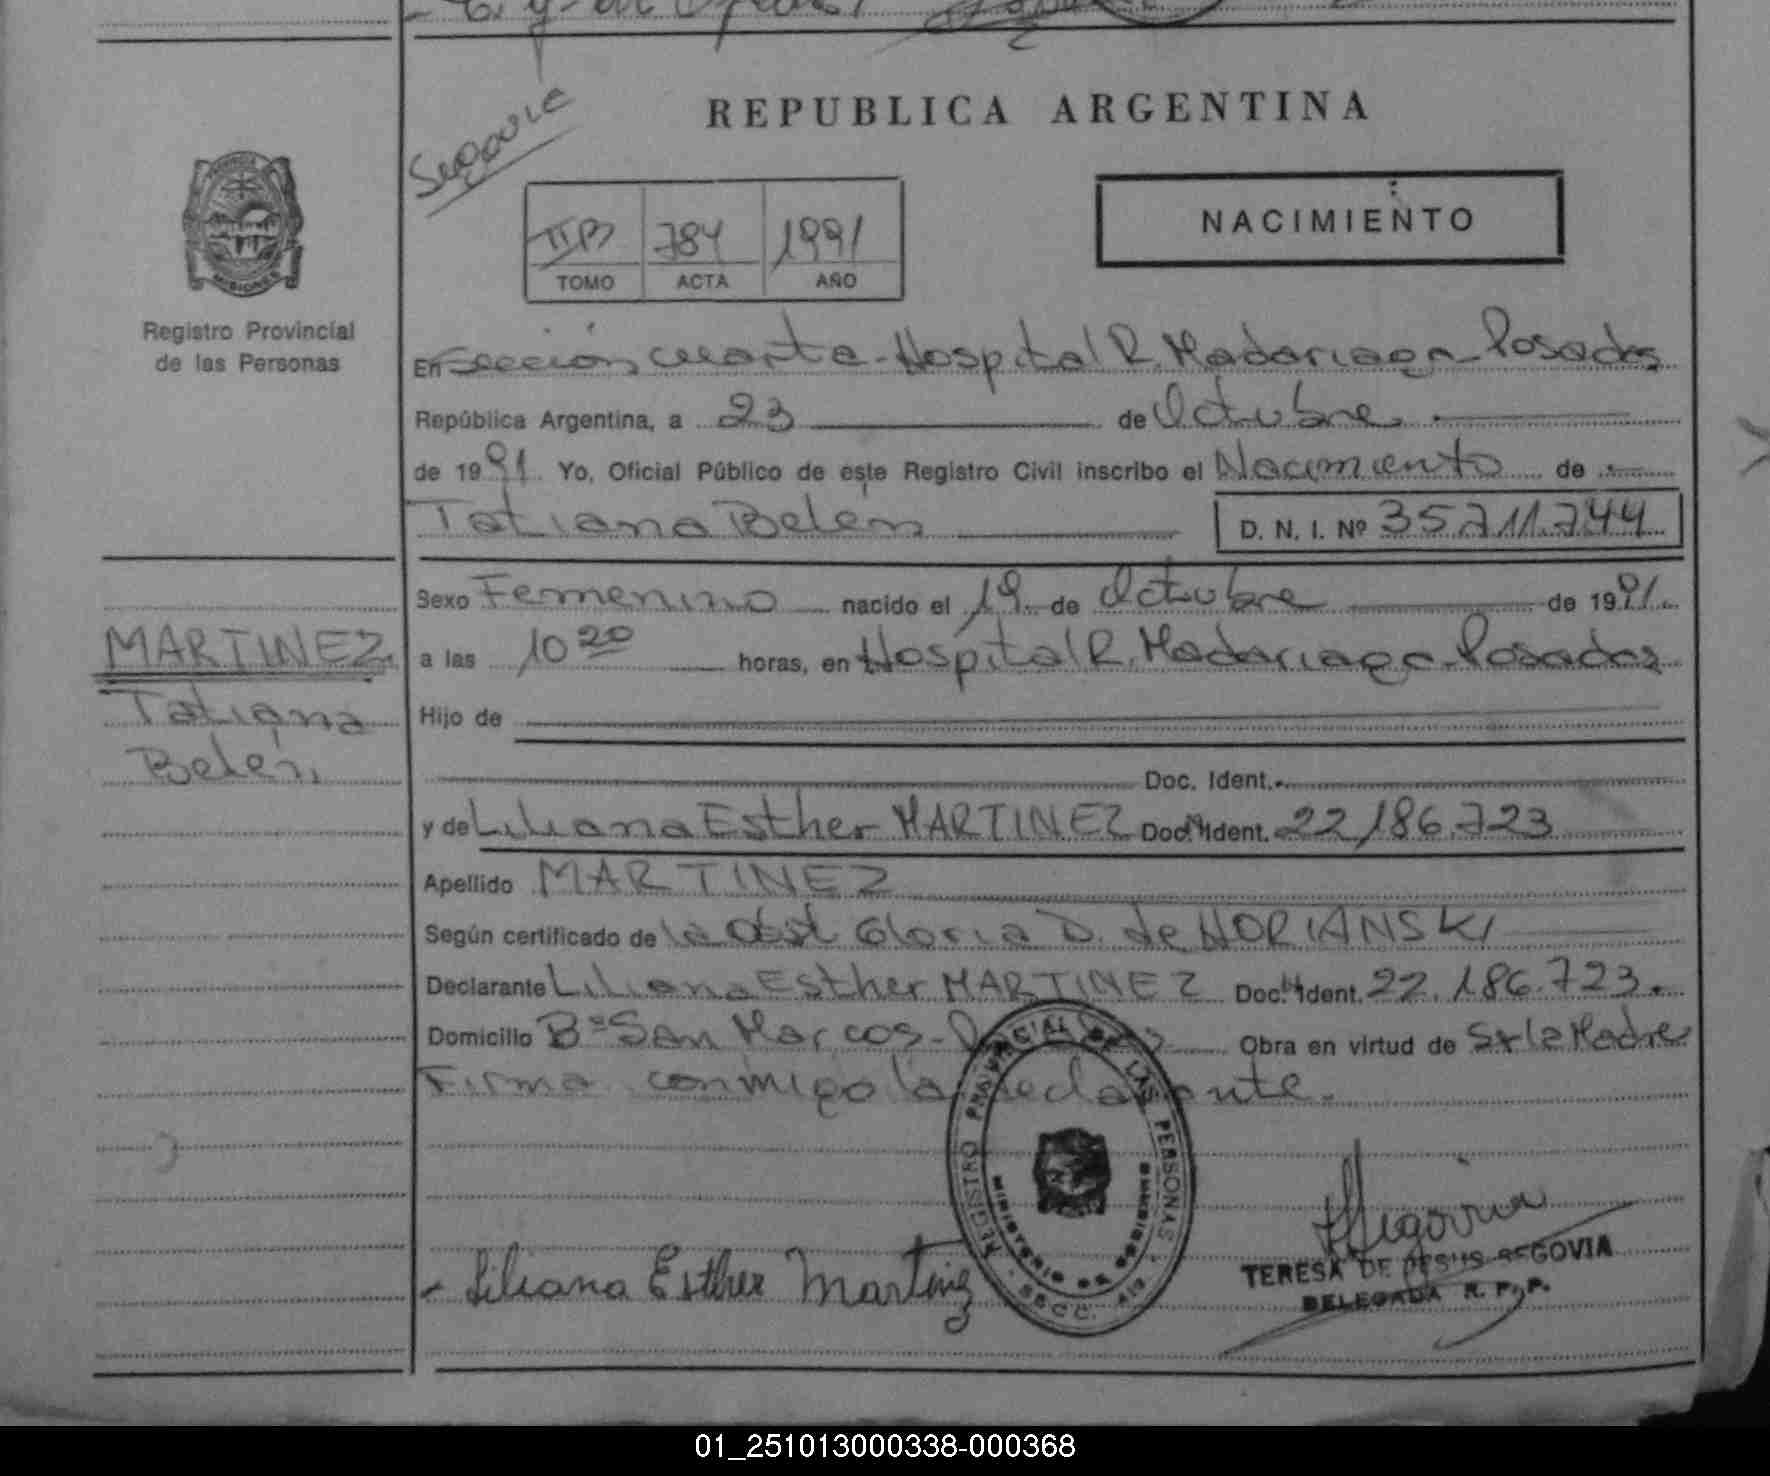 REPUBLICA ARGENTINA
Segovia
MISIONES
Registro Provincial
de las Personas
IIB 784 1991
TOMO ACTA AÑO
NACIMIENTO
En Sección cuarta - Hospital R. Madariaga - Posadas
República Argentina, a 23 de Octubre
de 1991 Yo, Oficial Público de este Registro Civil inscribo el Nacimiento de
Tatiana Belén D. N. I. Nº 35.711.744
Sexo Femenino nacido el 19 de Octubre de 1991
MARTINEZ
Tatiana
Belén
a las 10 20 horas, en Hospital R. Madariaga - Posadas
Hijo de
Doc. Ident.
y de Liliana Esther MARTINEZ Doc. Ident. 22.186.723
Apellido MARTINEZ
Según certificado de la Obst Gloria D. de HORIANSKI
Declarante Liliana Esther MARTINEZ Doc. Ident. 22.186.723.
Domicilio Bº San Marcos - Obra en virtud de Ser la Madre
Firma conmigo la declarante.
REGISTRO PROVINCIAL DE LAS PERSONAS
MINISTERIO DE GOBIERNO
SECC. 4ta
- Liliana Esther Martinez
Segovia
TERESA DE JESUS SEGOVIA
DELEGADA R. P. P.
01_251013000338-000368